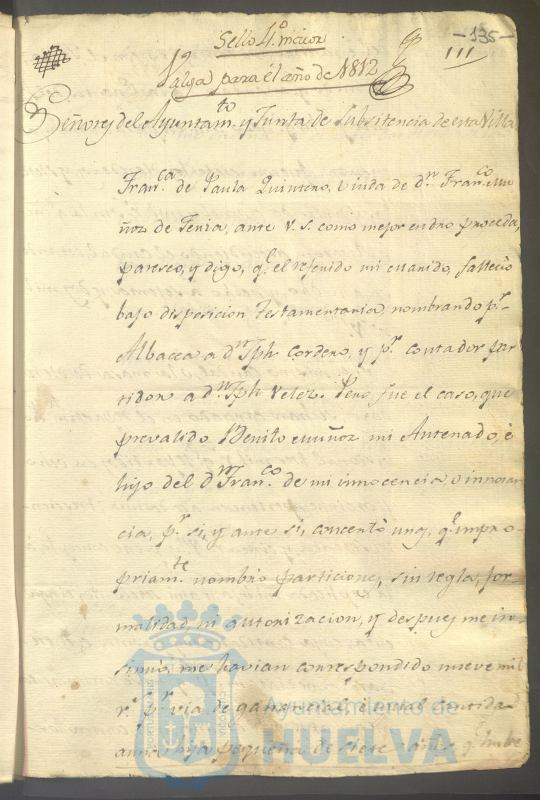 Sello 4.º mayor
-135-
111
Valga para el año de 1812
Señores del Ayuntam.to y Junta de Subsistencia de esta Villa
Fran.ca de Paula Quintero, viuda de d.n Fran.co Mu
ñoz de Feria, ante V.S. como mejor en dro proceda,
paresco, y digo, q.e el referido mi marido, fallecio
bajo disposicion testamentaria, nombrando p.r
Albacea a d.n Jph Cordero, y p.r contador par
tidor a d.n Jph Velez. Pero fue el caso, que
prevalido Benito Muñoz mi Antenado, é
hijo del d.n Fran.co de mi innocencia o innoran
cia, p.r si, y ante si, concertó unas, q.e impro
priam.te nombró particiones, sin regla, for
malidad, ni autorizacion, y despues me in
sinuó, me havian correspondido nueve mil
r.s p.r via de gananciales, è igual cantidad
a una hija pequeña de siete años, q.e hube
Ayuntamiento de
HUELVA